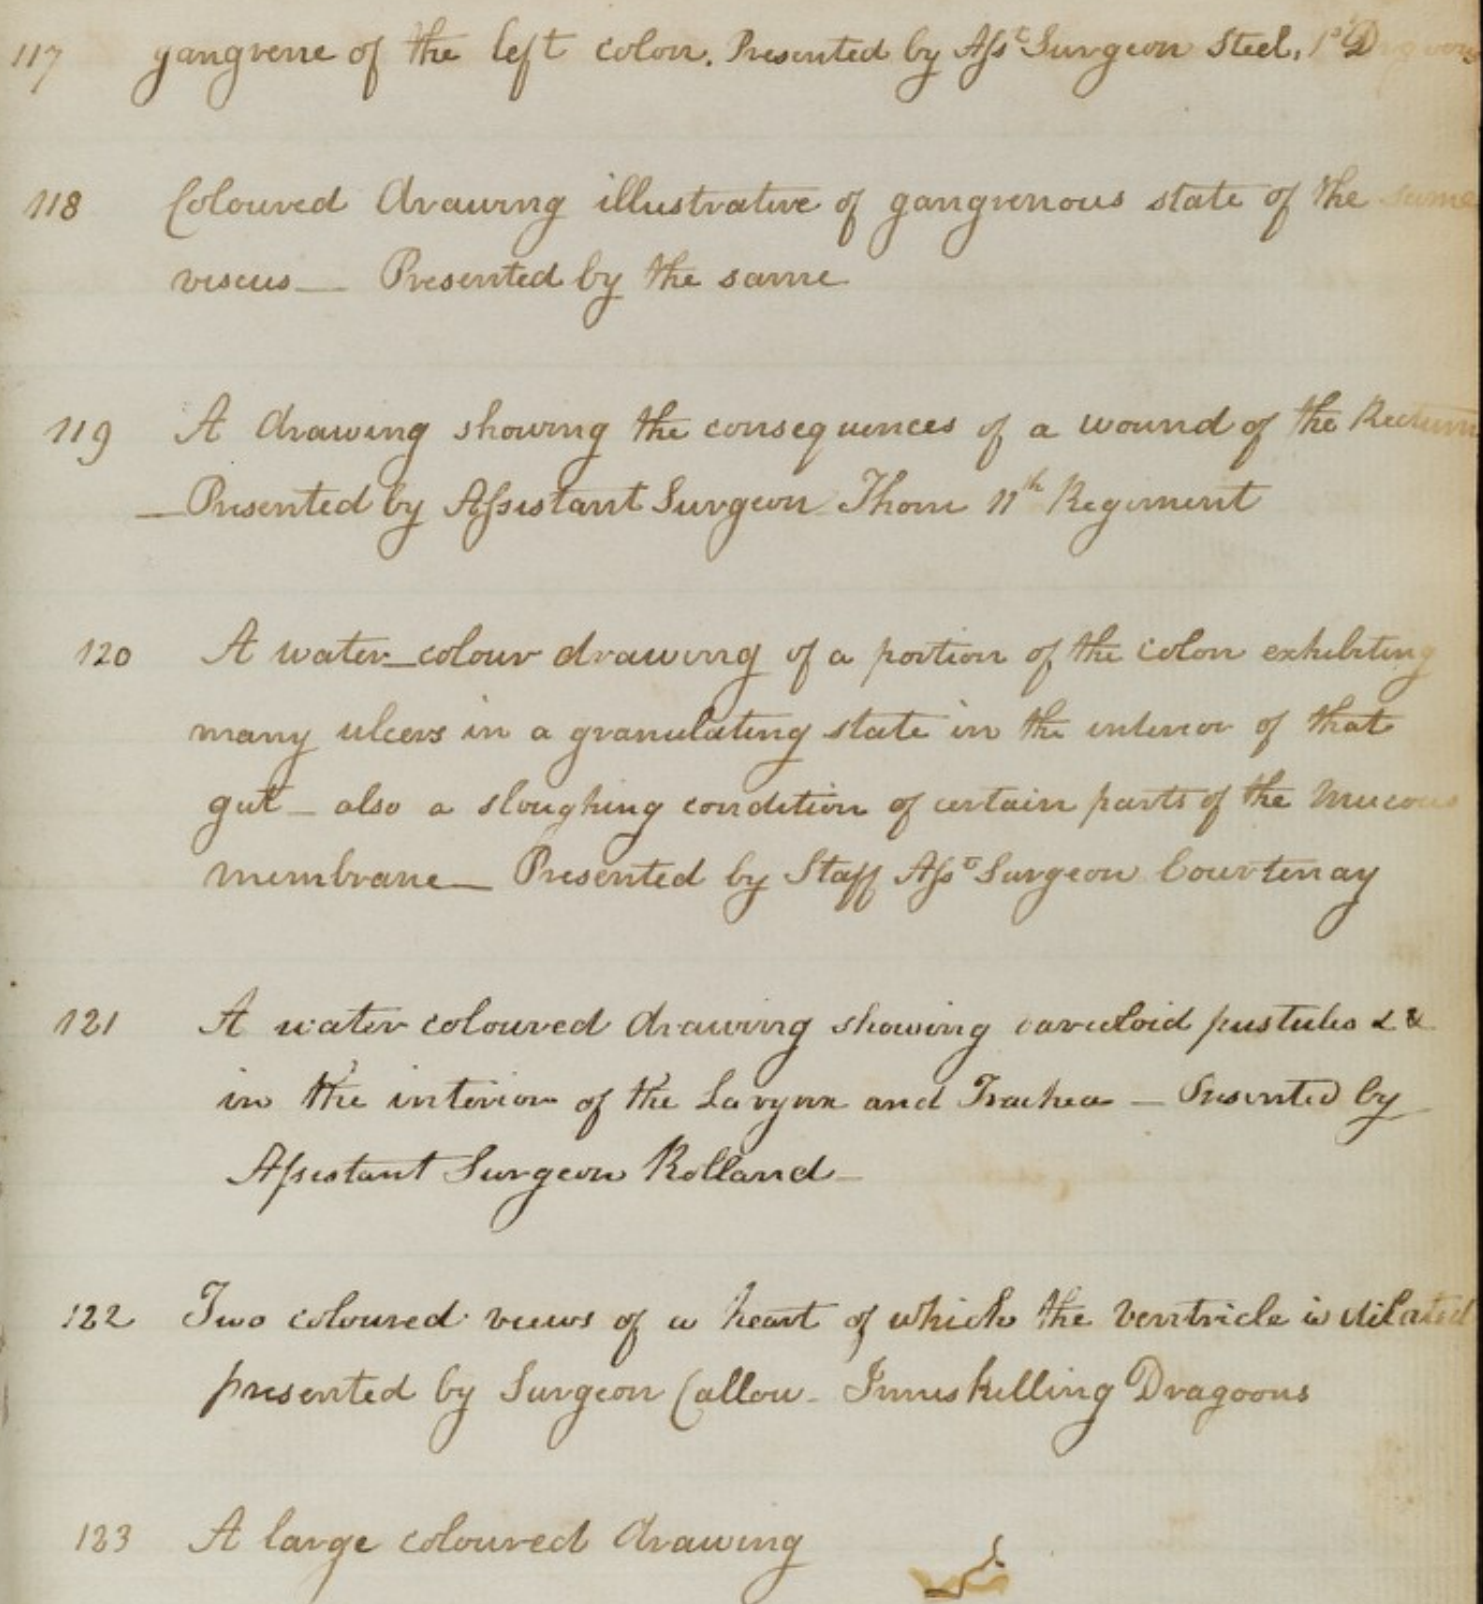 117 gangrene of the left colon. Presented by Asst Surgeon Steel, 1st Dragoons
118 Coloured drawing illustrative of gangrenous state of the same
viscus_ Presented by the same
119 A drawing showing the consequences of a wound of the Rectum
_Presented by Assistant Surgeon Thom 11th Regiment
120 A water_colour drawing of a portion of the colon exhibiting
many ulcers in a granulating state in the interior of that
gut_ also a sloughing condition of certain parts of the Mucous
membrane_ Presented by Staff Asst Surgeon Courtenay
121 A water coloured drawing showing varioloid pustules &c
in the interior of the Larynx and Trachea _ Presented by
Assistant Surgeon Rolland_
122 Two coloured views of a heart of which the ventricle is dilated
presented by Surgeon Callow_ Inniskilling Dragoons
123 A large coloured drawing